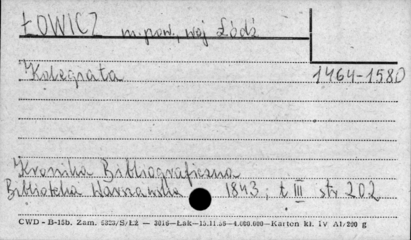 ŁOWICZ m. pow., woj Łódź
Kolegiata 1464-1580
Kronika Bibliograficzna
Biblioteka Warszawska 1843; t III str 202
CWD - B-15b. Zam. /S/Łż — 3016—Łak—15.11.56—4.000.000—Karton kl. IV A1/200 g